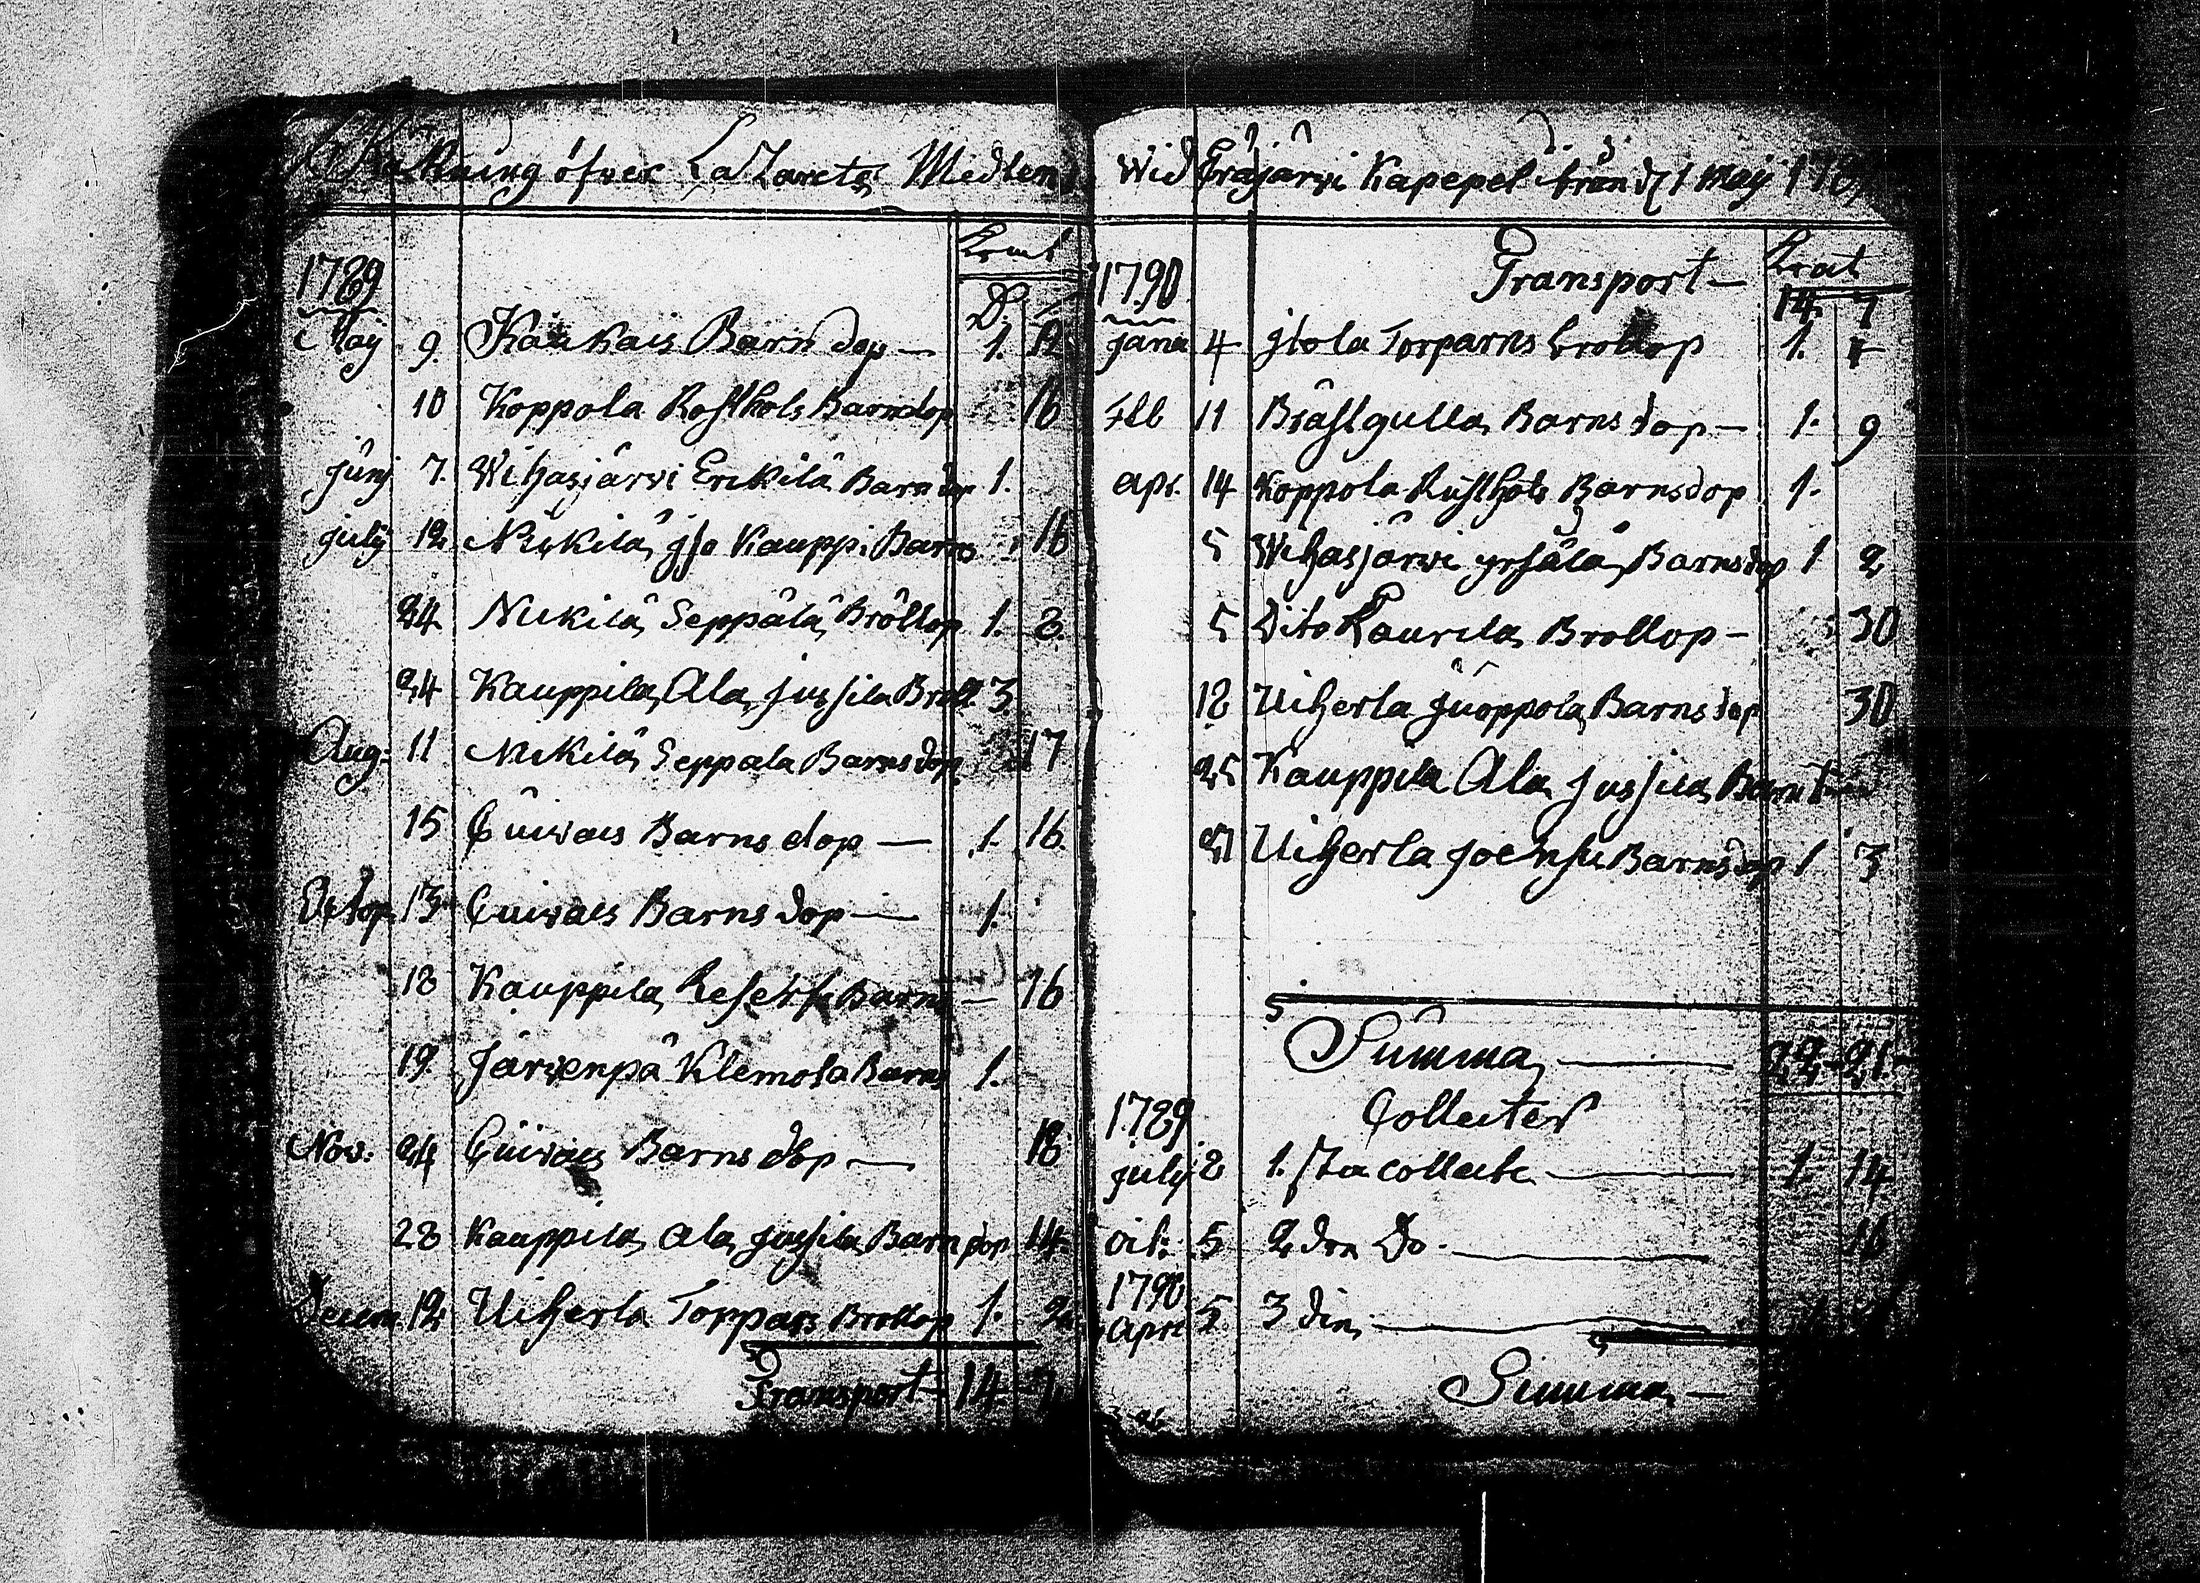 Räkning öfver Lazarets Medlen
Krat
1789 D.
Maij 9. Kaukais Barns dop — 1. 12
10 Koppola Rosthols Barnsdop 16
Junij 7. Wihasjärvi Erikilä Barn dop 1.
julij 12 Nikilä Iso Kauppi Barns 16
24 Nikilä Seppälä Bröllop 1. 8.
24 Kauppila Ala Jussila Bröll. 3.
Aug: 11 Nikilä Seppala Barnsdop 17
15 Cuivais Barns dop — 1. 16.
Octop 13 Cuivais Barns dop — 1.
18 Kauppila Barns — 16
19. Järvenpä Klemola Barns 1.
Nov. 24 Cuivais Barns dop — 18
28 Kauppila Ala Jussila Barn dop 14.
Decem 12 Uiherla Torpars Brollop 1. 2
Transport — 14. 7
wid Eräjärvi Kapepel ifrån d. 1 Maij
Transport — Krat
1790 14. 7
jana 4 Isola Torparns Brollop 1.
Feb 11 Brästgulla Barns dop — 1. 9
apr. 14 Koppola Rusthols Barnsdop 1.
5 Wihasjärvi yrjälä Barnsdop 1 2
5 Dito Laurila Brollop — 30
18 Uiherla Juoppola Barns dop 30
25 Kauppila Ala Jussila Barn
27 Uiherla Joensu Barnsdop 1 3
Summa — 22. 21.
Collecter
1789
july 2 1. sta collecte — 1. 14
oct: 5 2 dra Do. — 16
1790
apr: 5 3 din —
Summa —